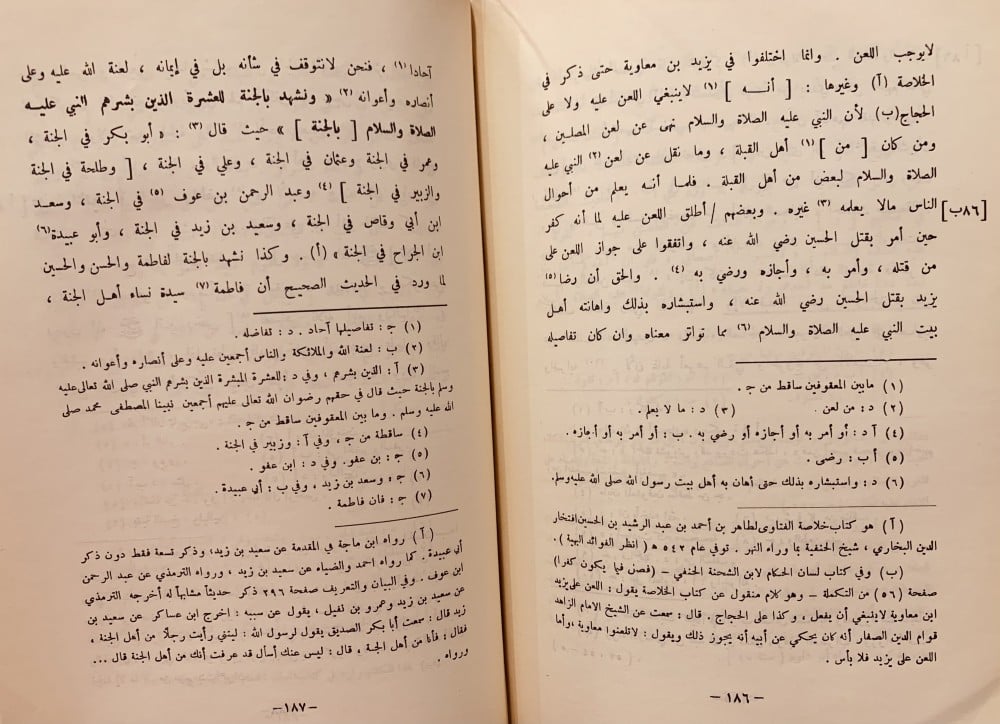 لايوجب اللعن . وانما اختلفوا في يزيد بن معاوية حتى ذكر في
الخلاصة (آ) وغيرها : [ أنـــه ] (١) لاينبغي اللعن عليه ولا على
الحجاج(ب) لأن النبي عليه الصلاة والسلام نهى عن لعن المصلين ،
ومن كان [ من ] (١) أهل القبلة ، وما نقل عن لعن (٢) النبي عليه
الصلاة والسلام لبعض من أهل القبلة . فلمـا أنـــه يعلم من أحوال
الناس مالا يعلمه (٣) غيره . وبعضهم / أطلق اللعن عليه لما أنه كفر
[٨٦ب]
حين أمر بقتل الحسين رضي الله عنه ، واتفقوا على جواز اللعن على
من قتله ، وأمر به ، وأجازه ورضي به (٤) . والحق أن رضا (٥)
يزيد بقتل الحسين رضي الله عنه ، واستبشاره بذلك واهانته أهـل
بيت النبي عليه الصلاة والسلام (٦) مما تواتر معناه وان كان تفاصيله
(١) مابين المعقوفين ساقط من جـ .
(٢) د : من لعن . (٣) د : ما لا يعلم .
(٤) آ د : أو أمر به أو أجازه أو رضي به . ب : أو أمر به أو أجازه .
(٥) أ ب : رضى .
(٦) د : واستبشاره بذلك حتى أهان به أهل بيت رسول الله صلى الله عليه وسلم.
(آ) هو كتاب خلاصة الفتاوى لطاهر بن أحمد بن عبد الرشيد بن الحسين افتخار
الدين البخاري ، شيخ الحنفية بما وراه النهر . توفي عام ٥٤٢ ه ( انظر الفوائد البهية ) .
(ب) وفي كتاب لسان الحكام لابن الشحنة الحنفي – (فصل فيما يكون كفرا)
صفحة (٥٦) من التكملة – وهو كلام منقول عن كتاب الخلاصة يقول : اللعن على يزيد
ابن معاوية لاينبغي أن يفعل ، وكذا على الحجاج . قال : سمعت عن الشيخ الامام الزاهد
قوام الدين الصفار أنه كان يحكي عن أبيه أنه يجوز ذلك ويقول : لاتلعنوا معاوية ، وأما
اللعن على يزيد فلا بأس .
– ١٨٦ –
آحادا (١) ، فنحن لانتوقف في شأنه بل في إيمانه ، لعنة الله عليه وعلى
أنصاره وأعوانه (٢) « ونشهد بالجنة للعشرة الذين بشرهم النبي عليـــه
الصلاة والسلام [ بالجنة ] » حيث قال (٣) : « أبو بكر في الجنة ،
وعمر في الجنة وعثمان في الجنة ، وعلي في الجنة ، [ وطلحة في الجنة
والزبير في الجنة ] (٤) وعبد الرحمن بن عوف (٥) في الجنة ، وسعـد
ابن أبي وقاص في الجنة ، وسعيد بن زيد في الجنة ، وأبو عبيدة (٦)
ابن الجراح في الجنة » (أ) . وكذا نشهد بالجنة لفاطمة والحسن والحسين
لما ورد في الحديث الصحيح أن فاطمة (٧) سيدة نساء أهـل الجنة ،
(١) جـ : تفاصيلها آحاد . د : تفاضله .
(٢) ب : لعنة الله والملائكة والناس أجمعين عليه وعلى أنصاره وأعوانه .
(٣) آ : الذين بشرهم ، وفي د : للعشرة المبشرة الذين بشرهم النبي صلى الله تعالى عليه
وسلم بالجنة حيث قال في حقهم رضوان الله تعالى عليهم أجمعين نبينا المصطفى محمد صلى
الله عليه وسلم . وما بين المعقوفين ساقط من جـ .
(٤) ساقطة من جـ ، وفي آ : وزبير في الجنة .
(٥) جـ : بن عفو. وفي د : ابن عفو .
(٦) جـ : وسعد بن زيد ، وفي ب : أبي عبيدة .
(٧) جـ : فان فاطمة .
(آ) رواه ابن ماجة في المقدمة عن سعيد بن زيد؛ وذكر تسعة فقط دون ذكر
أبي عبيدة . كما رواه احمد والضياء عن سعيد بن زيد ، ورواه الترمذي عن عبد الرحمن
ابن عوف . وفي البيان والتعريف صفحة ٢٩٦ ذكر حديثاً مشابهاً له أخرجه الترمذي
عن سعيد بن زيد وعمرو بن نفيل ، يقول عن سببه : اخرج ابن عساكر عن سعيد بن
زيد قال : سمعت أبا بكر الصديق يقول لرسول الله : ليتني رأيت رجلاً من أهل الجنة ،
فقال : فأنا من أهل الجنة ، قال : ليس عنك أسأل قد عرفت أنك من أهل الجنة قال ...
ورواه .
– ١٨٧ –